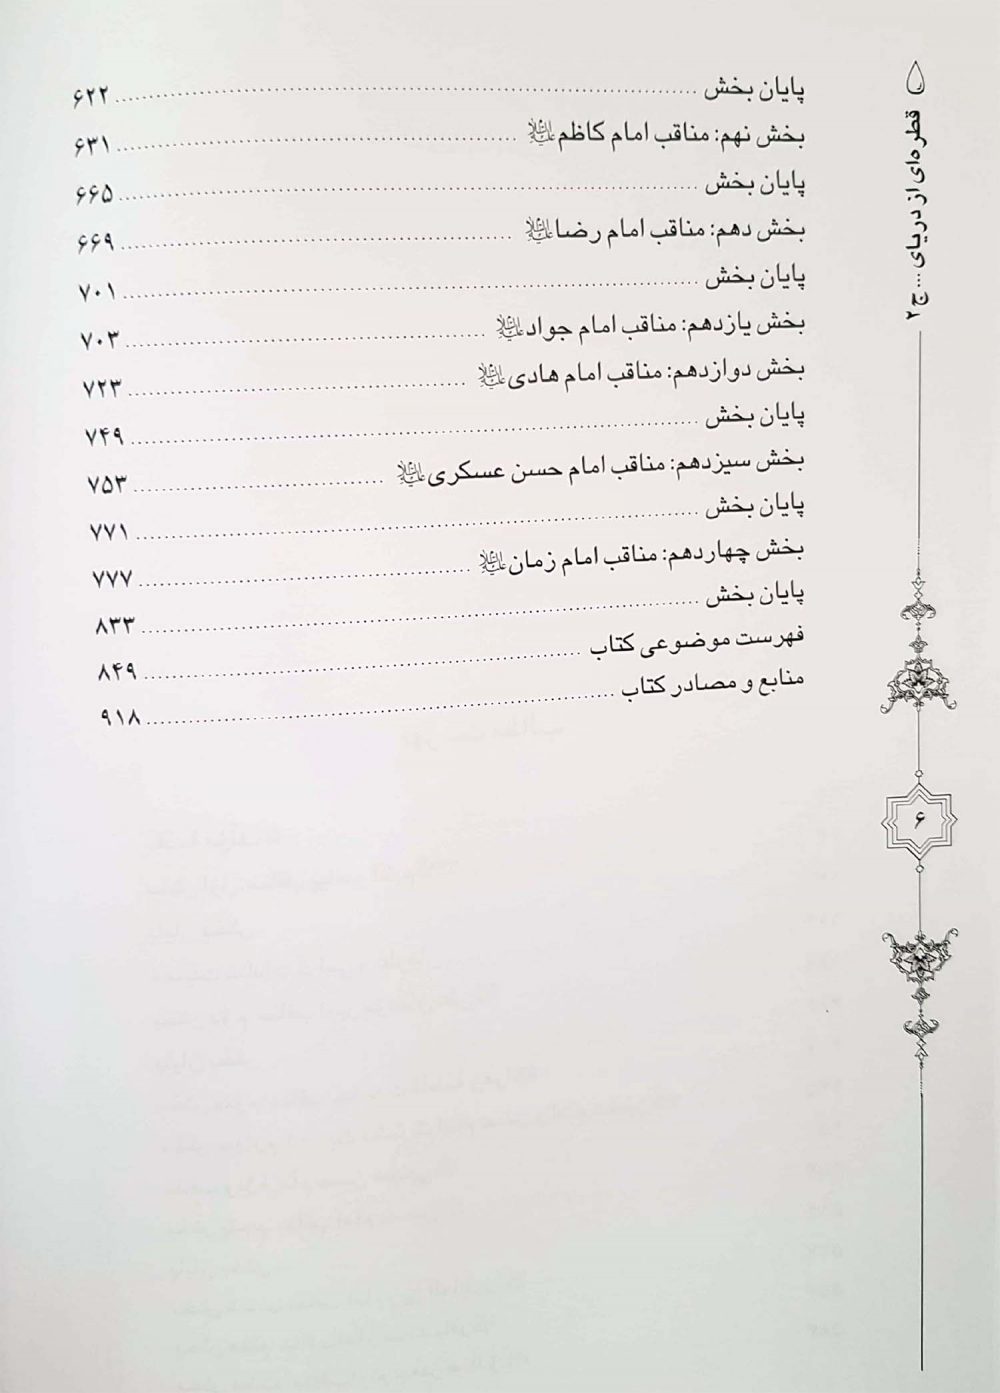 پایان بخش ........ ۶۲۲
بخش نهم: مناقب امام کاظم علیه السلام ........ ۶۳۱
پایان بخش ........ ۶۶۵
بخش دهم: مناقب امام رضا علیه السلام ........ ۶۶۹
پایان بخش ........ ۷۰۱
بخش یازدهم: مناقب امام جواد علیه السلام ........ ۷۰۳
بخش دوازدهم: مناقب امام هادی علیه السلام ........ ۷۲۳
پایان بخش ........ ۷۴۹
بخش سیزدهم: مناقب امام حسن عسکری علیه السلام ........ ۷۵۳
پایان بخش ........ ۷۷۱
بخش چهاردهم: مناقب امام زمان علیه السلام ........ ۷۷۷
پایان بخش ........ ۸۳۳
فهرست موضوعی کتاب ........ ۸۴۹
منابع و مصادر کتاب ........ ۹۱۸
قطره‌ای از دریای... ج۲
۶